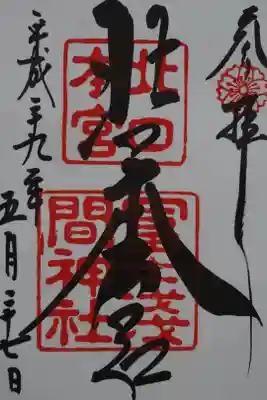 参拝
北口本宮
北口
本宮
冨士淺
間神社
平成二九年
五月二七日